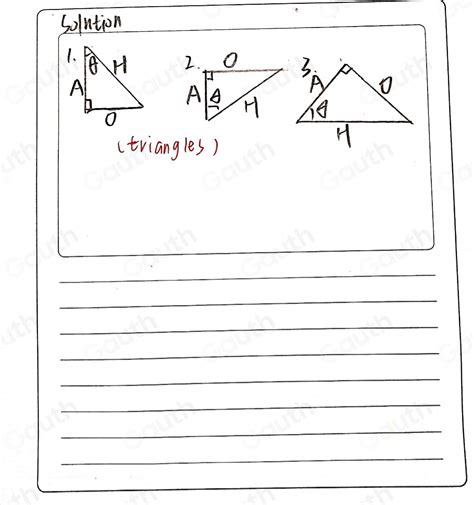 Solution
1. θ H A O
2. O A θ H
3. A O θ H
(triangles)
Gauth